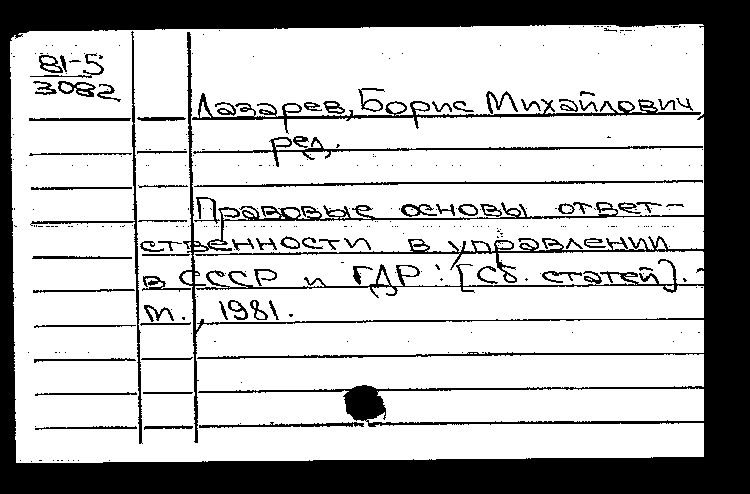 81-5
3082
Лазарев, Борис Михайлович,
ред.
Правовые основы ответ-
ственности в управлении
в СССР и ГДР: [Сб. статей]. -
М., 1981.